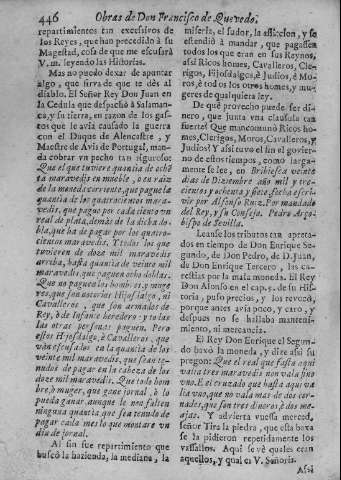 446 Obras de Don Francisco de Quevedo,
repartimientos tan excesivos de
los Reyes, que han precedido à su
Magestad, cosa de que me escusarà
V. m. leyendo las Historias.
Mas no puedo dexar de apuntar
algo, que sirva de que te dès al
diablo. El Señor Rey Don Juan en
la Cedula que despachò à Salamanca,
y su tierra, en razon de los gastos
que le avia causado la guerra
con el Duque de Alencastre, y
Maestre de Avis de Portugal, manda
cobrar vn pecho tan riguroso:
Que el que tuviere quantia de ochẽta
maravedis en mueble, o en raiz
de la moneda corriente, que pague la
quantia de los quatrocientos maravedis,
que pague por cada cierto un
real de plata, demàs de la dicha dobla,
que ha de pagar por los quatrocientos
maravedis. Y todos los que
tuvieren de doze mil maravedis
arriba, hasta quantia de veinte mil
maravedis, que paguen ocho doblas.
Que no paguen los hombres, y mugeres,
que son notorios Hijosdalgo, ni
Cavalleros, que son armados de
Rey, ò de Infante heredero: y todas
las otras personas paguen. Pero
estos Hijosdalgo, ò Cavalleros, que
vãn escusados en la quantia de los
veinte mil maravedis, que sean tenudos
de pagar en la cabeza de los
doze mil maravedis. Que todo hombre,
ò muger, que gane jornal, ò lo
pueda ganar, aunque le non fallen
ninguna quantia que sea tenudo de
pagar cada mes lo que montare en
un dia de jornal.
Al sin fue repartimiento que
buscò la hazienda, la mediana, la
miseria, el sudor, la afliccion, y se
estendiò à mandar, que pagassen
todos los que eran en sus Reynos,
assi Ricos homes, Cavalleros, Clerigos,
Hijosdalgo, è Judios, è Moros,
è todos los otros homes, y mugeres
de qualquier ley.
De què provecho puede ser dinero,
que junta vna clausula tan
fuerte? Que mancomunò Ricos homes,
Clerigos, Moros, Cavalleros, y
Judios? Y assi tuvo el fin el govierno
de estos tiempos, como largamente
se lee, en Bribiesca veinte
dias de Diziembre año mil y trecientos
y ochenta y siete, fecha escrivir
por Alfonso Ruiz. Por mandado
del Rey, y su Consejo. Pedro Arçobispo
de Sevilla.
Leanse los tributos tan apretados
en tiempo de Don Enrique Segundo,
de Don Pedro, de D. Juan,
de Don Enrique Tercero, las carestias
por la mala moneda. El Rey
Don Alonso en el cap. 5. de su Historia,
puso precios, y los revocò,
porque antes avia poco, y caro, y
despues no se hallaba mantenimiento,
ni mercancia.
El Rey Don Enrique el Segundo
baxò la moneda, y dize assi su
pregon: Que el real que fasta aqui
valia tres maravedis non vala sino
uno. E al cruzado que hasta aqui valia
uno, que no vala mas de dos cornados,
que son tres dineros è dos meajas.
Y advierta vuessa merced,
señor Tira la piedra, que esta baxa
se la pidieron repetidamente los
vassallos. Aqui se vè quales eran
aquellos, y qual es V. Señoria.
Assi